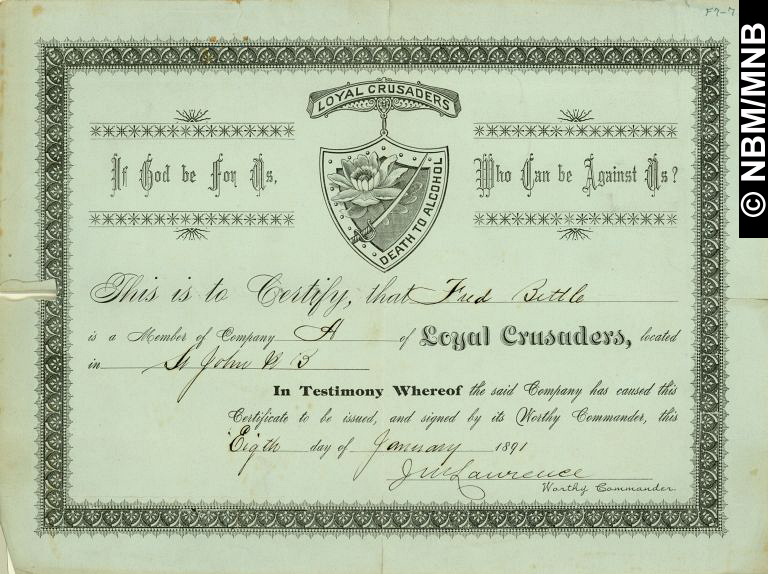 F7-7
© NBM/MNB
LOYAL CRUSADERS
If God be For Us,
Who Can be Against Us?
DEATH TO ALCOHOL
This is to Certify, that Fred Bettle
is a Member of Company A of Loyal Crusaders, located
in St John N B
In Testimony Whereof the said Company has caused this
Certificate to be issued, and signed by its Worthy Commander, this
Eigth day of January 1891
J W Lawrence
Worthy Commander.